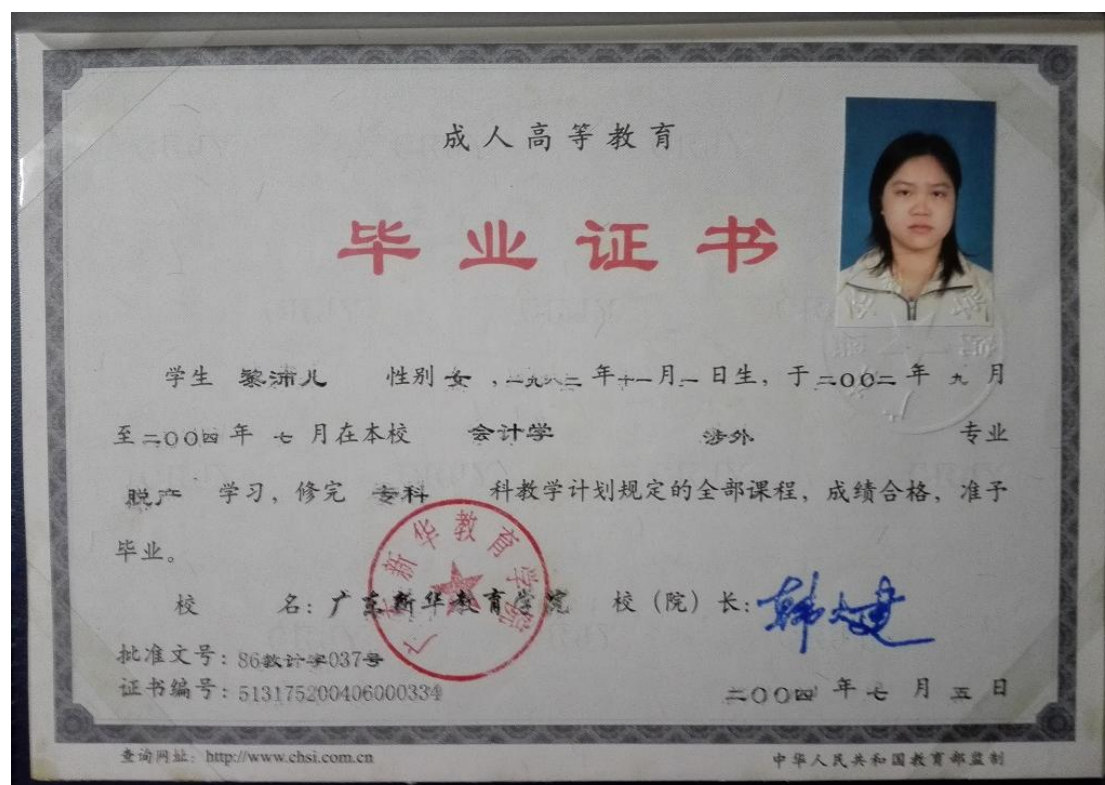 成人高等教育
毕业证书
学生 黎沛儿 性别 女 ,一九八二 年 十一 月 一 日生，于 二00二 年 九 月
至 二00四 年 七 月在本校 会计学 涉外 专业
脱产 学习，修完 专科 科教学计划规定的全部课程，成绩合格，准予
毕业。
校 名：广东新华教育学院 校（院）长：
广东新华教育学院
批准文号：86教计字037号
证书编号：513175200406000334
二00四 年 七 月 五 日
查询网址：http://www.chsi.com.cn
中华人民共和国教育部监制